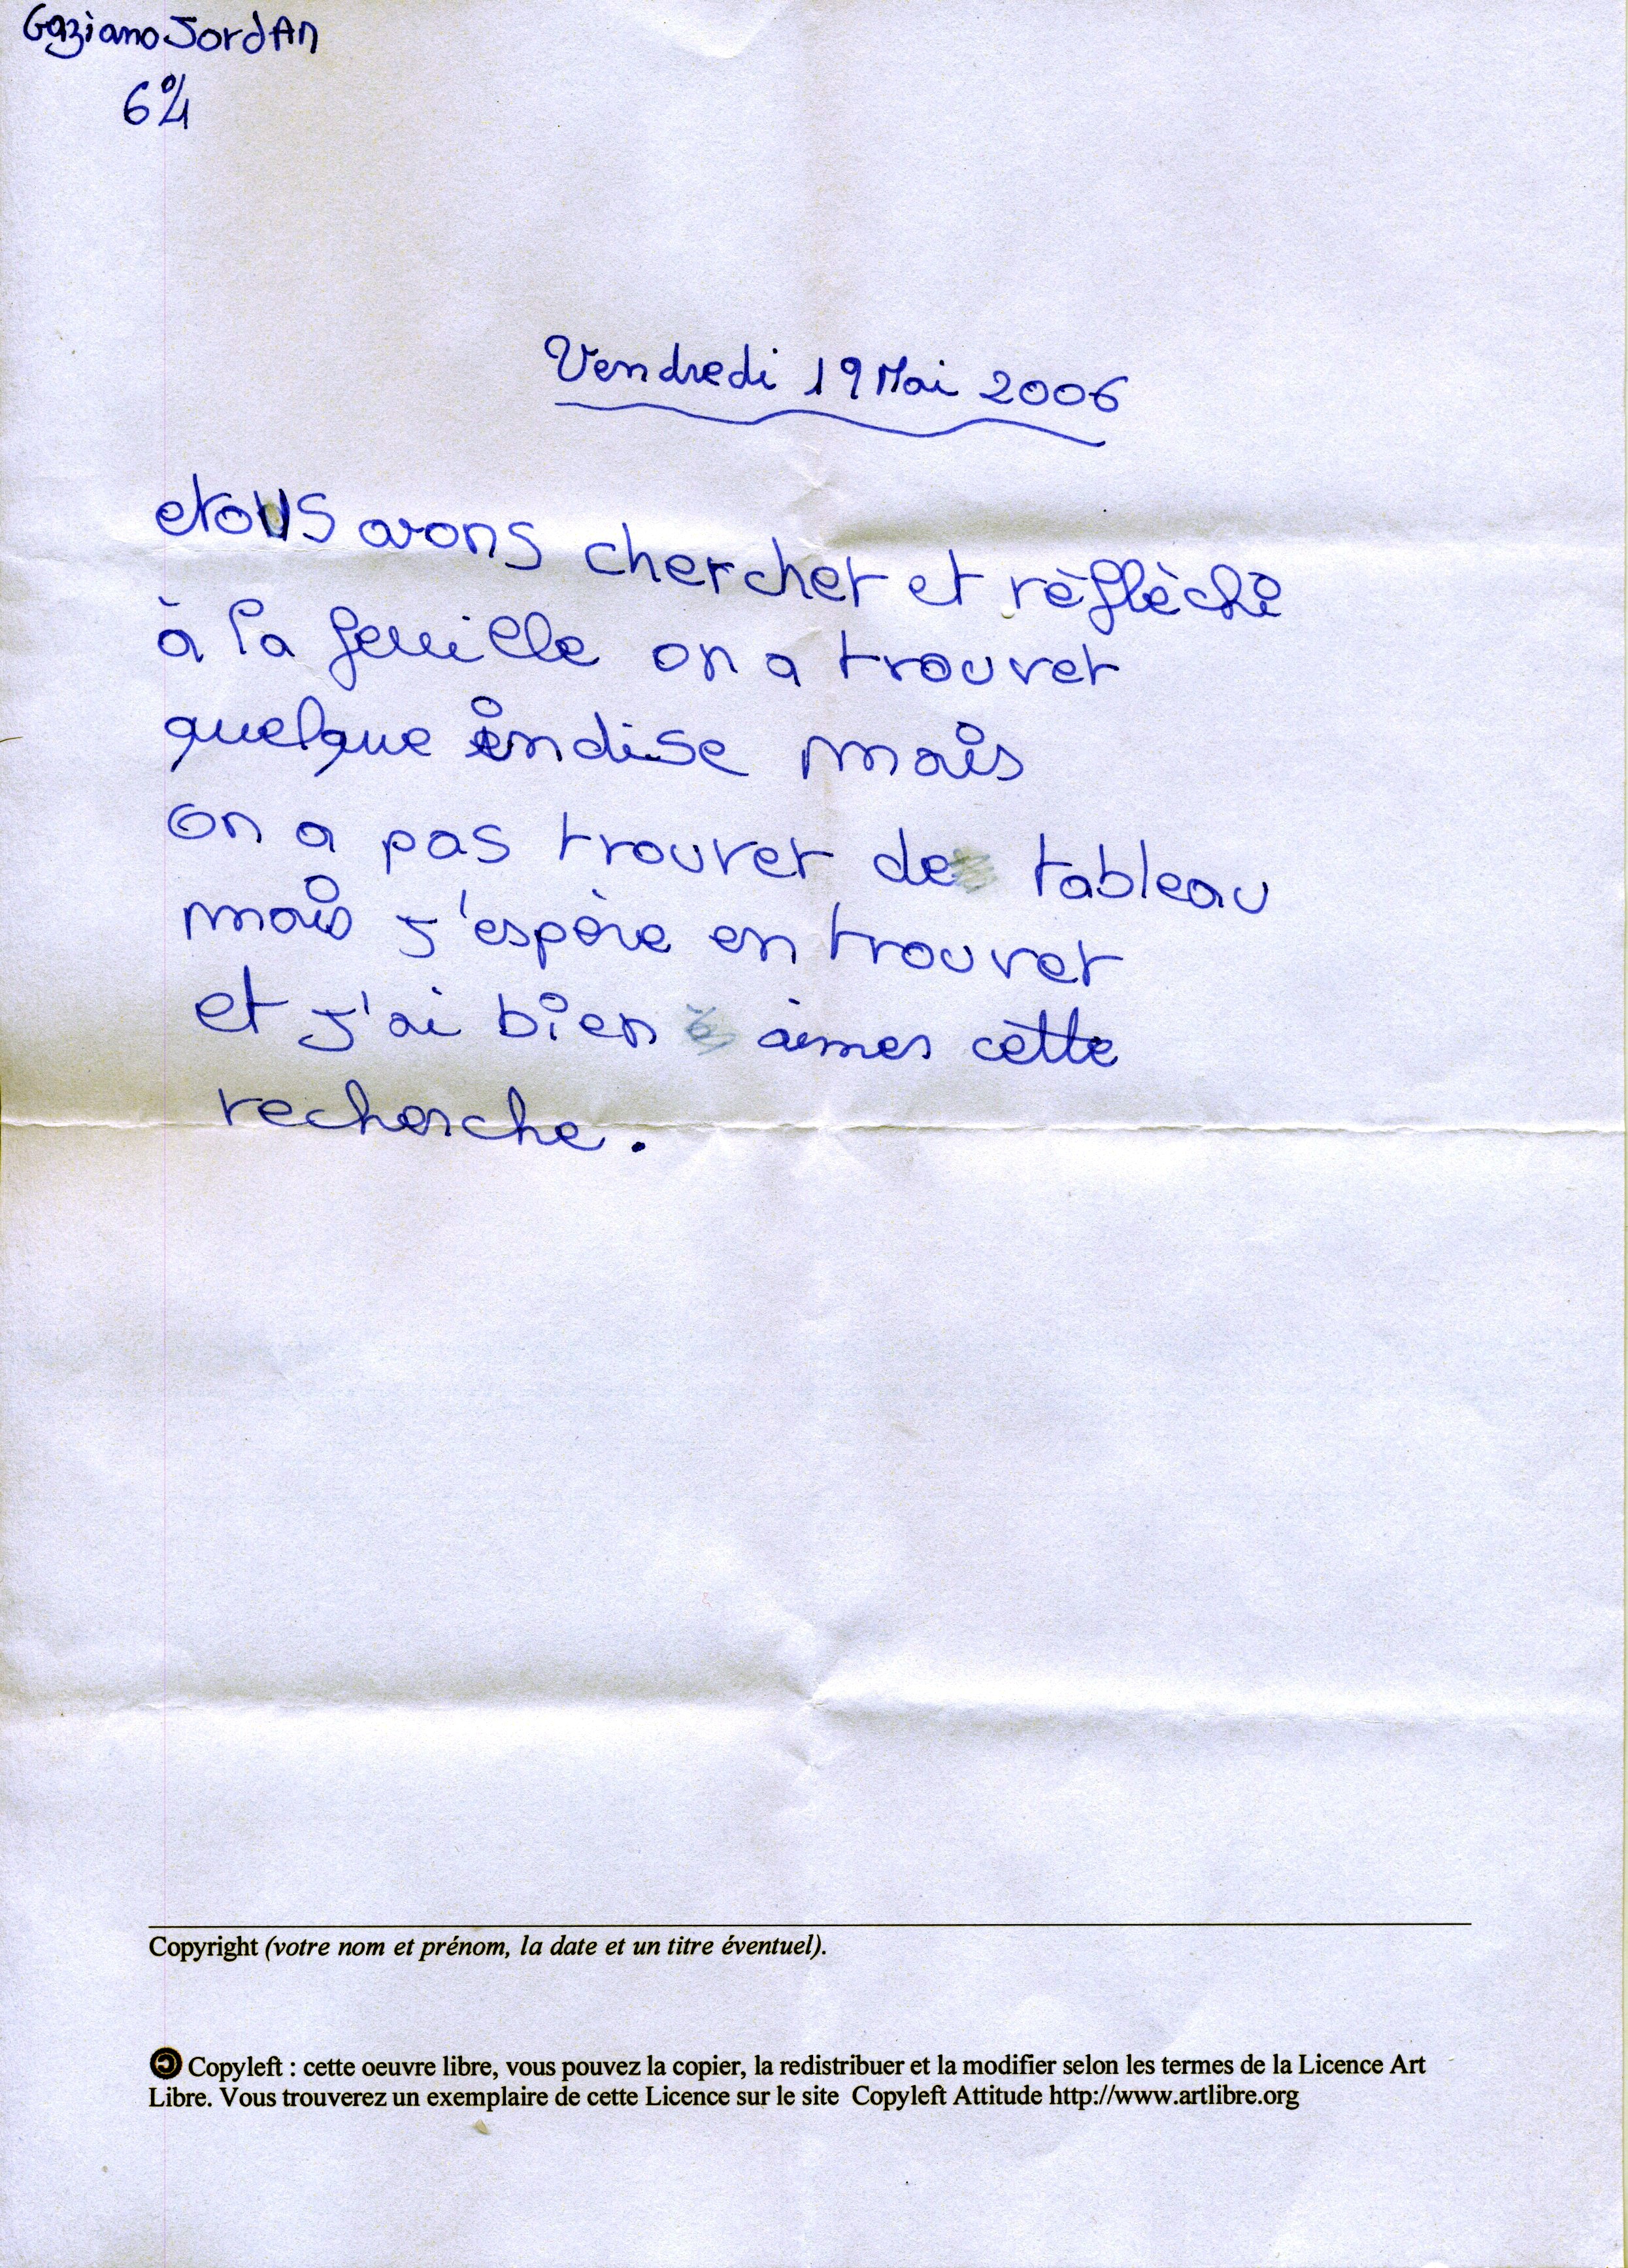 Gaziano JordAn
6°4
Vendredi 19 Mai 2006
Nous avons chercher et rèflèchi
à la feuille on a trouver
quelque indise mais
on a pas trouver de tableau
mais j'espère en trouver
et j'ai bien aimer cette
recherche.
Copyright (votre nom et prénom, la date et un titre éventuel).
Copyleft : cette oeuvre libre, vous pouvez la copier, la redistribuer et la modifier selon les termes de la Licence Art
Libre. Vous trouverez un exemplaire de cette Licence sur le site Copyleft Attitude http://www.artlibre.org